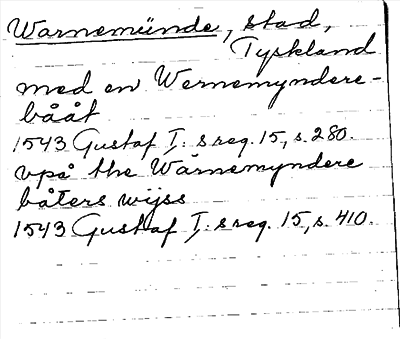 Warnemünde, stad,
Tyskland
med en Wernemyndere-
bååt
1543 Gustaf I: s reg. 15, s. 280.
vpå the Wårnemyndere
båters wijss
1543 Gustaf I: s reg. 15, s. 410.